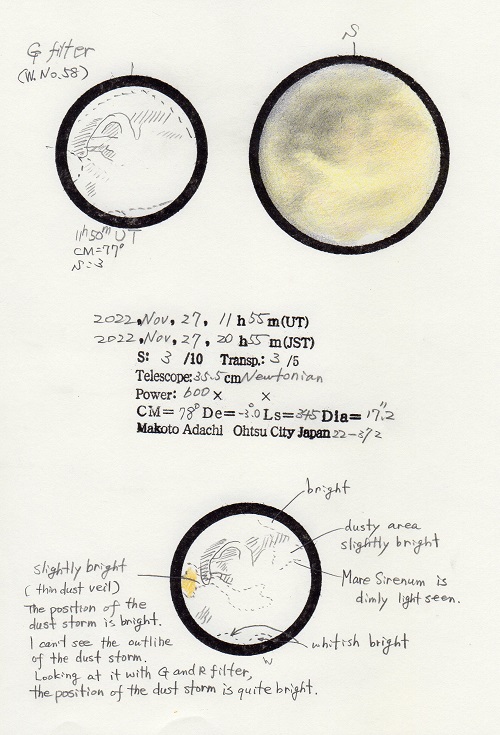 G filter
(W.No.58)
S
11h50m UT
CM=77°
S=3
2022, Nov, 27, 11 h 55 m(UT)
2022, Nov, 27, 20 h 55 m(JST)
S: 3 /10 Transp.: 3 /5
Telescope: 35.5 cm Newtonian
Power: 600 × ×
CM= 78° De= -3.0° Ls= 345 Dia= 17.2"
Makoto Adachi Ohtsu City Japan 22-372
bright
dusty area
slightly bright
Mare Sirenum is
dimly light seen.
whitish bright
N
slightly bright
(thin dust veil)
The position of the
dust storm is bright.
I can't see the outline
of the dust storm.
Looking at it with G and R filter,
the position of the dust storm is quite bright.